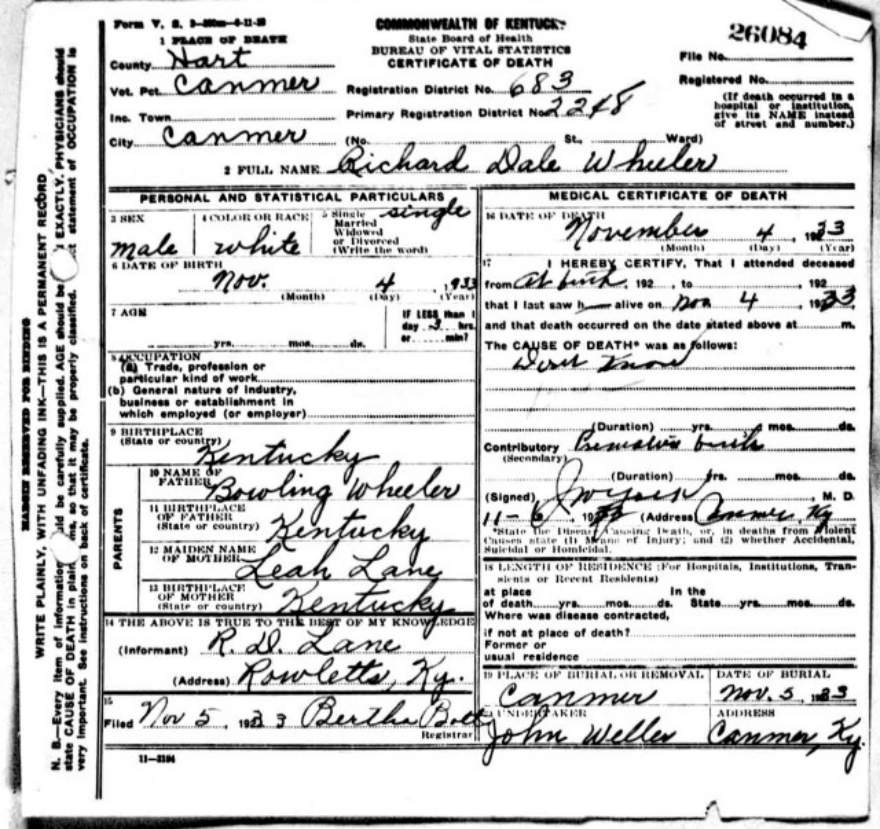 Form V. S.
COMMONWEALTH OF KENTUCKY
State Board of Health
BUREAU OF VITAL STATISTICS
CERTIFICATE OF DEATH
26084
File No.
Registered No.
(If death occurred in a hospital or institution, give its NAME instead of street and number.)
1 PLACE OF DEATH
County Hart
Vot. Pct. Canmer
Inc. Town
City Canmer
Registration District No. 683
Primary Registration District No. 2248
(No. St., Ward)
2 FULL NAME Richard Dale Wheeler
PERSONAL AND STATISTICAL PARTICULARS
3 SEX
male
4 COLOR OR RACE
white
5 Single
Married
Widowed
or Divorced
(Write the word)
single
6 DATE OF BIRTH
Nov. 4, 1933
(Month) (Day) (Year)
7 AGE
yrs. mos. ds.
IF LESS than 1
day 3 hrs.
or min?
8 OCCUPATION
(a) Trade, profession or
particular kind of work
(b) General nature of industry,
business or establishment in
which employed (or employer)
9 BIRTHPLACE
(State or country)
Kentucky
PARENTS
10 NAME OF
FATHER
Bowling Wheeler
11 BIRTHPLACE
OF FATHER
(State or country)
Kentucky
12 MAIDEN NAME
OF MOTHER
Leah Lane
13 BIRTHPLACE
OF MOTHER
(State or country)
Kentucky
14 THE ABOVE IS TRUE TO THE BEST OF MY KNOWLEDGE
(Informant) R. D. Lane
(Address) Rowletts, Ky.
15
Filed Nov 5, 1933 Bertha
Registrar
11-3184
MEDICAL CERTIFICATE OF DEATH
16 DATE OF DEATH
November 4, 1933
(Month) (Day) (Year)
17 I HEREBY CERTIFY, That I attended deceased
from At birth, 192 , to , 192
that I last saw h alive on Nov 4 1933
and that death occurred on the date stated above at m.
The CAUSE OF DEATH* was as follows:
Dont Know
(Duration) yrs. mos. ds.
Contributory Premature birth
(Secondary)
(Duration) yrs. mos. ds.
(Signed) , M. D.
11- (Address) Canmer, Ky
*State the Disease Causing Death, or, in deaths from Violent
Causes state (1) Means of Injury; and (2) whether Accidental,
Suicidal or Homicidal.
18 LENGTH OF RESIDENCE (For Hospitals, Institutions, Tran-
sients or Recent Residents)
at place
of death yrs. mos. ds.
In the
State yrs. mos. ds.
Where was disease contracted,
if not at place of death?
Former or
usual residence
19 PLACE OF BURIAL OR REMOVAL
Canmer
DATE OF BURIAL
Nov. 5, 1933
20 UNDERTAKER
John Weller
ADDRESS
Canmer, Ky.
MARGIN RESERVED FOR BINDING
WRITE PLAINLY, WITH UNFADING INK—THIS IS A PERMANENT RECORD
N. B.—Every item of information should be carefully supplied. AGE should be EXACTLY. PHYSICIANS should
state CAUSE OF DEATH in plain so that it may be properly classified. statement of OCCUPATION is
very important. See instructions on back of certificate.